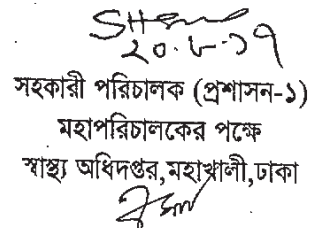 ২০.৮.১৭
সহকারী পরিচালক (প্রশাসন-১)
মহাপরিচালকের পক্ষে
স্বাস্থ্য অধিদপ্তর,মহাখালী,ঢাকা